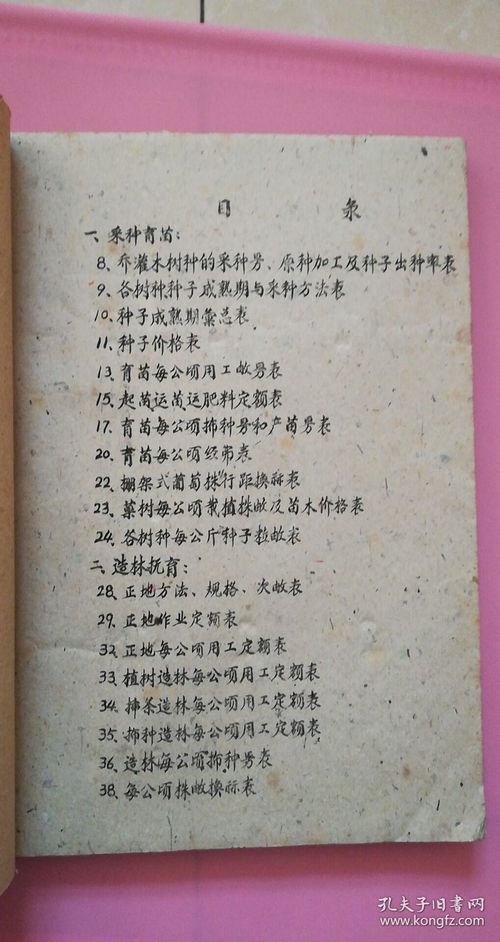 目 录
一、采种育苗：
8、乔灌木树种的采种号、原种加工及种子出种率表
9、各树种种子成熟期与采种方法表
10、种子成熟期彙总表
11、种子价格表
13、育苗每公顷用工数另表
15、起苗运苗运肥料定额表
17、育苗每公顷播种号和产苗号表
20、育苗每公顷经费表
22、棚架式葡萄株行距换标表
23、菓树每公顷栽植株数及苗木价格表
24、各树种每公斤种子粒数表
二、造林抚育：
28、正地方法、规格、次数表
29、正地作业定额表
32、正地每公顷用工定额表
33、植树造林每公顷用工定额表
34、插条造林每公顷用工定额表
35、播种造林每公顷用工定额表
36、造林每公顷播种号表
38、每公顷株数换标表
孔夫子旧书网
www.kongfz.com